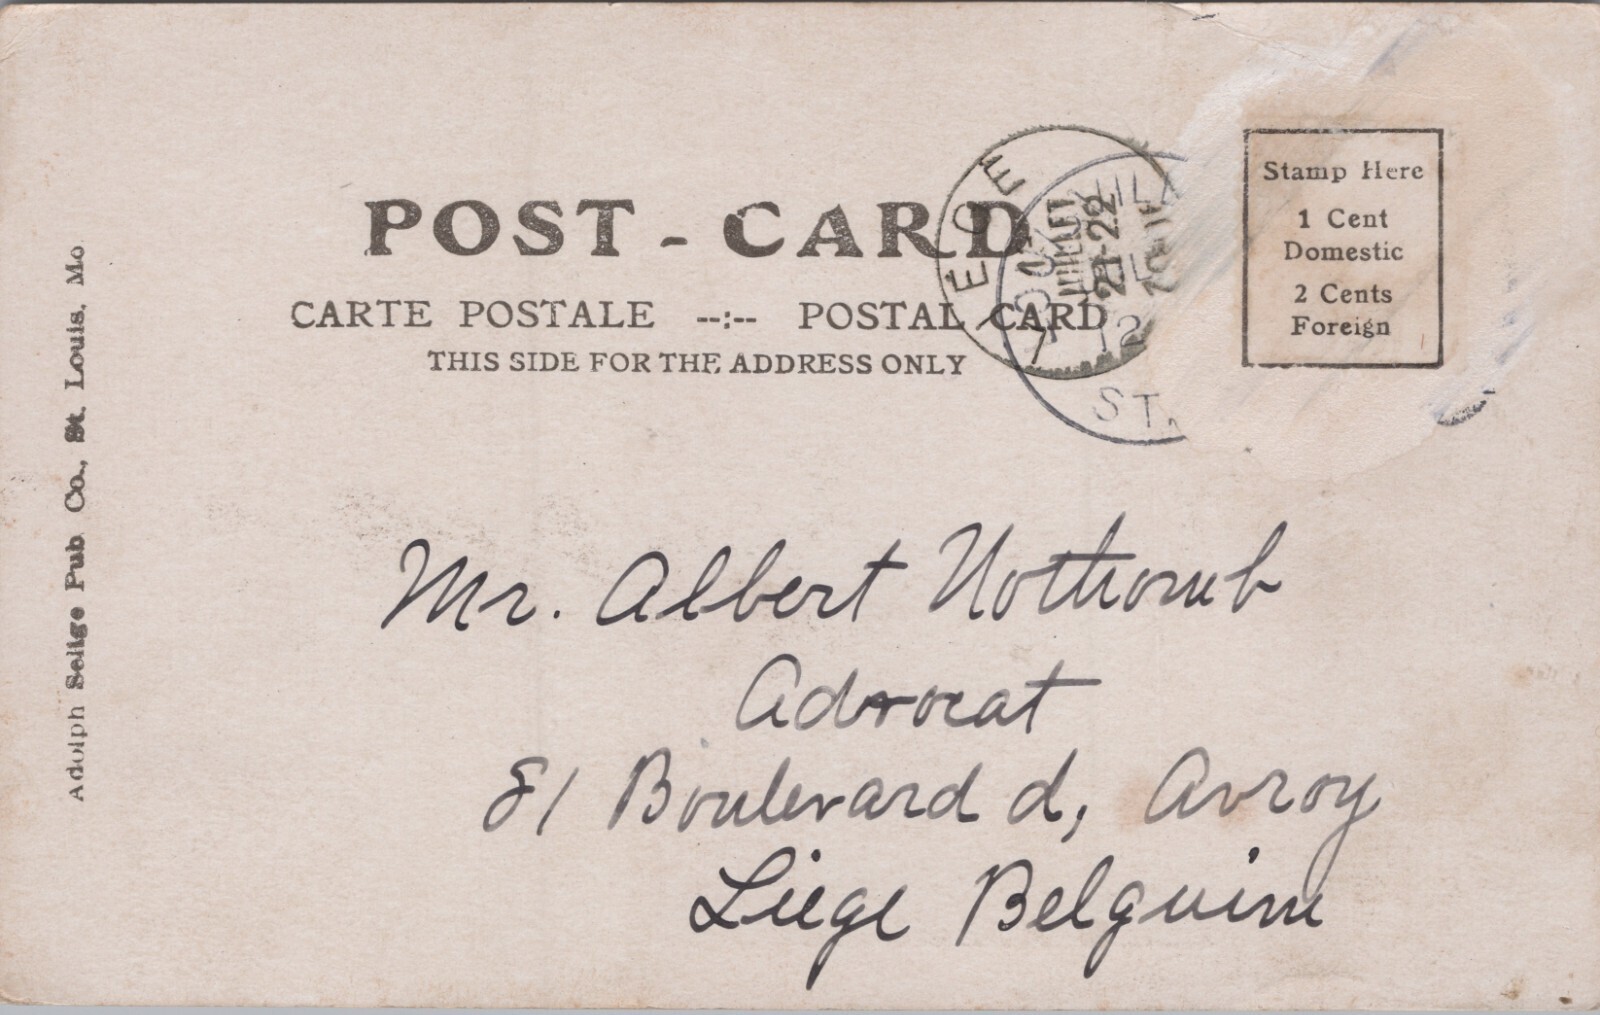 POST-CARD
CARTE POSTALE --:-- POSTAL CARD
THIS SIDE FOR THE ADDRESS ONLY
Stamp Here
1 Cent
Domestic
2 Cents
Foreign
JUILLET
21-22
ST.
Adolph Selige Pub Co., St. Louis, Mo
Mr. Albert Nothomb
Advocat
81 Boulevard d, Avroy
Liege Belguim